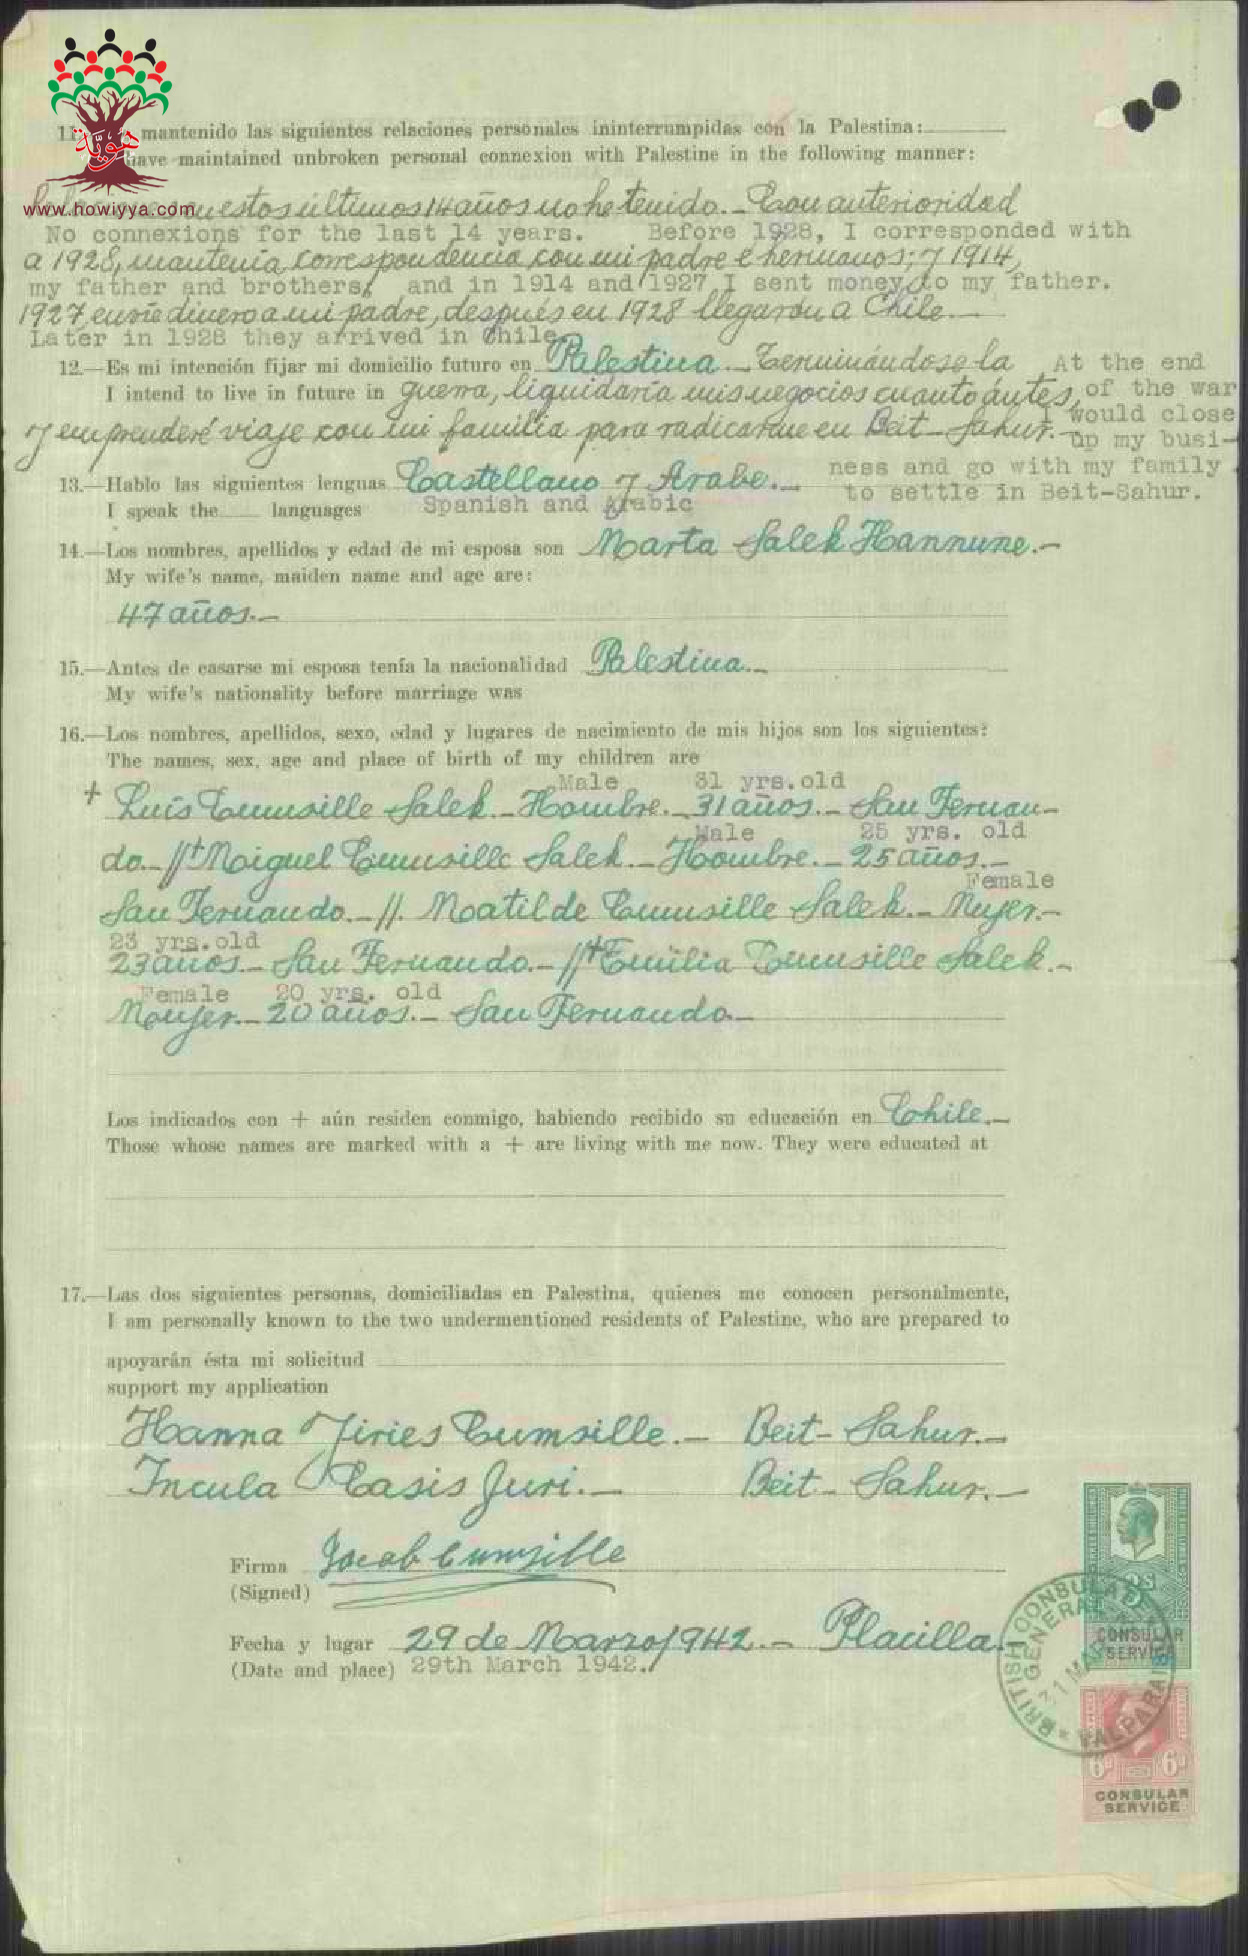 هويّة
www.howiyya.com
11. mantenido las siguientes relaciones personales ininterrumpidas con la Palestina:
have maintained unbroken personal connexion with Palestine in the following manner:
estos últimos 14 años no he tenido.- Con anterioridad
No connexions for the last 14 years. Before 1928, I corresponded with
a 1928, mantenía correspondencia con mi padre e hermanos; y 1914,
my father and brothers, and in 1914 and 1927 I sent money to my father.
1927, envié dinero a mi padre, después en 1928 llegaron a Chile.-
Later in 1928 they arrived in Chile.
12.—Es mi intención fijar mi domicilio futuro en Palestina.- Terminándose la At the end
I intend to live in future in guerra, liquidaría mis negocios cuanto ántes, of the war
I would close
y emprenderé viaje con mi familia para radicarme en Beit-Sahur.- up my busi-
ness and go with my family
13.—Hablo las siguientes lenguas Castellano y Arabe.- to settle in Beit-Sahur.
I speak the languages Spanish and Arabic
14.—Los nombres, apellidos y edad de mi esposa son Marta Salek Hannune.-
My wife's name, maiden name and age are:
47 años.-
15.—Antes de casarse mi esposa tenía la nacionalidad Palestina.-
My wife's nationality before marriage was
16.—Los nombres, apellidos, sexo, edad y lugares de nacimiento de mis hijos son los siguientes:
The names, sex, age and place of birth of my children are
Male 31 yrs. old
+ Luis Cumsille Salek.- Hombre.- 31 años.- San Fernan-
Male 25 yrs. old
do.- //+ Miguel Cumsille Salek.- Hombre.- 25 años.-
Female
San Fernando.- //. Matilde Cumsille Salek.- Mujer.-
23 yrs. old
23 años.- San Fernando.- //+ Emilia Cumsille Salek.-
Female 20 yrs. old
Mujer.- 20 años.- San Fernando.-
Los indicados con + aún residen conmigo, habiendo recibido su educación en Chile.-
Those whose names are marked with a + are living with me now. They were educated at
17.—Las dos siguientes personas, domiciliadas en Palestina, quienes me conocen personalmente,
I am personally known to the two undermentioned residents of Palestine, who are prepared to
apoyarán ésta mi solicitud
support my application
Hanna Jiries Cumsille.- Beit-Sahur.-
Incula Casis Juri.- Beit-Sahur.-
Firma Jacob Cumsille
(Signed)
Fecha y lugar 29 de Marzo/942.- Placilla.-
(Date and place) 29th March 1942.
CONSULAR
SERVICE
BRITISH CONSULATE
GENERAL
31 MAR
VALPARAISO
6D 6D
CONSULAR
SERVICE